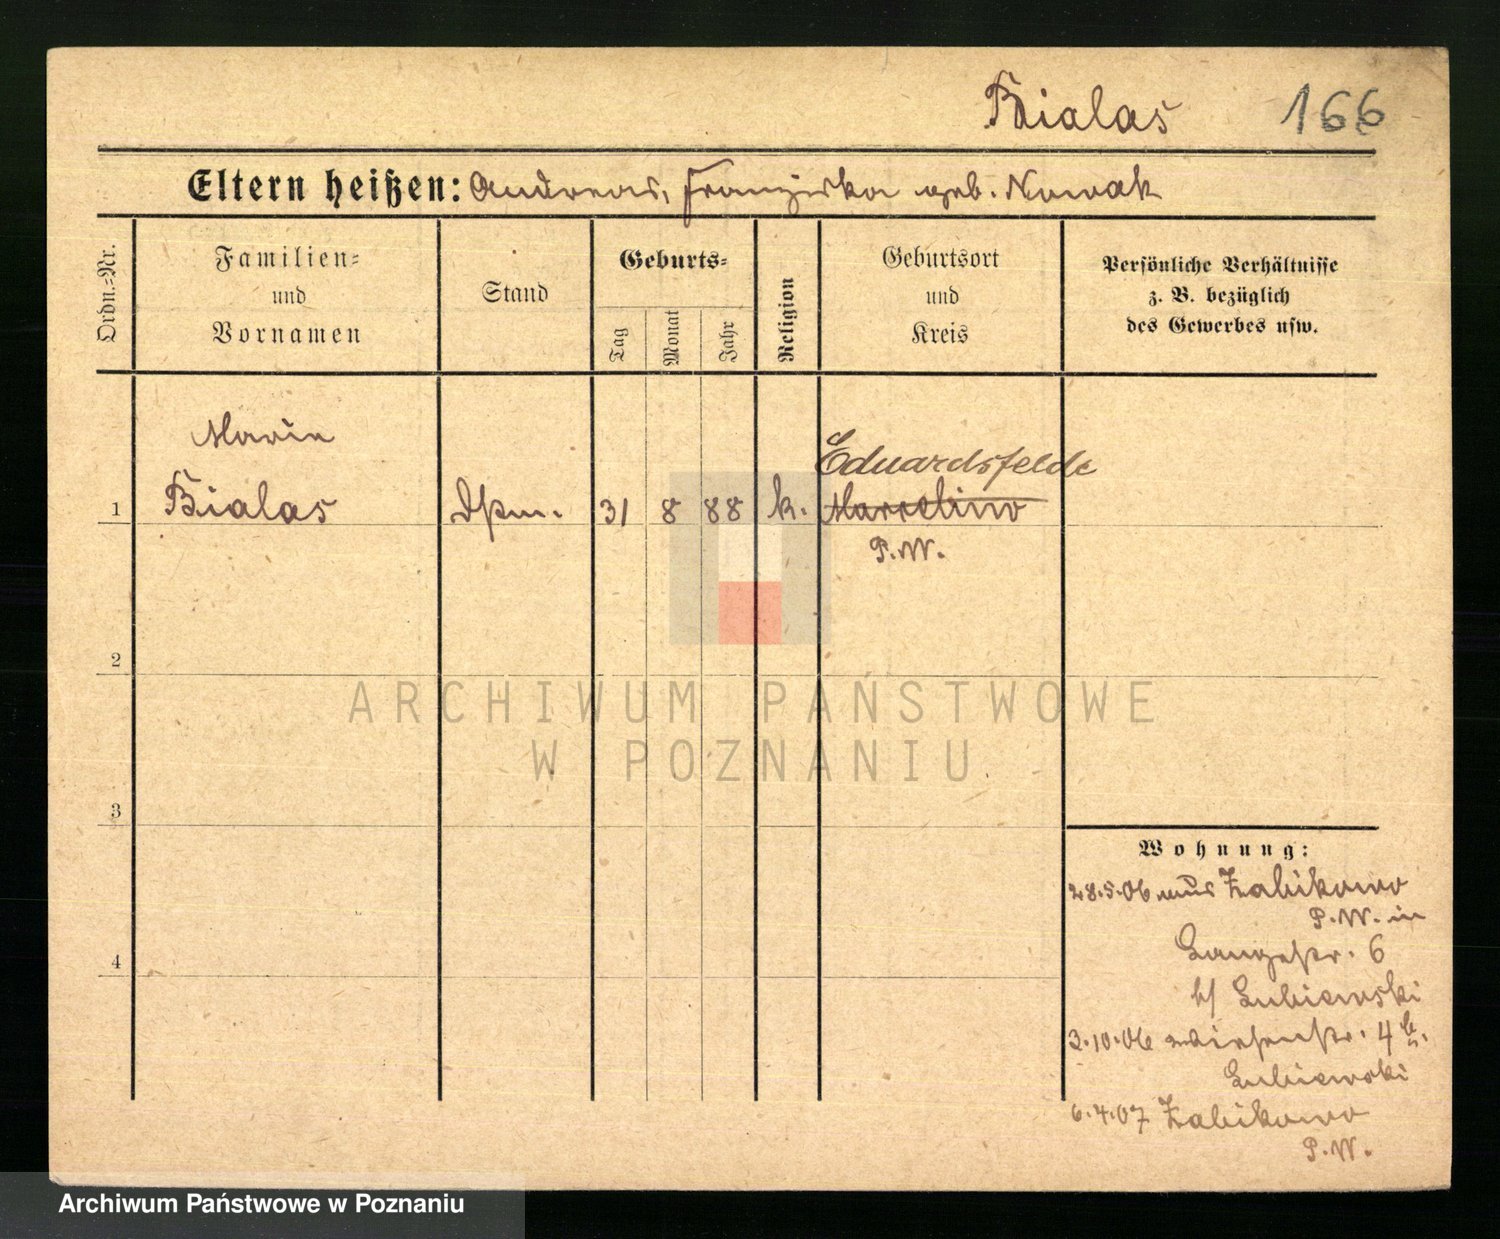 Bialas 166
Eltern heißen: Andreas, Franziska geb. Nowak
Ordn.-Nr.
Familien-
und
Vornamen
Stand
Geburts-
Tag
Monat
Jahr
Religion
Geburtsort
und
Kreis
Persönliche Verhältnisse
z. B. bezüglich
des Gewerbes usw.
Marie
Eduardsfelde
1 Bialas Dpm. 31 8 88 k. Marcelino
P.W.
2
ARCHIWUM PAŃSTWOWE
W POZNANIU
3
Wohnung:
28.5.06 aus Zabikowo
P.W. in
4
Langestr. 6
b/ Lubiewski
2.10.06 Wiesenstr. 4 b.
Lubiewski
6.4.07 Zabikowo
P.W.
Archiwum Państwowe w Poznaniu